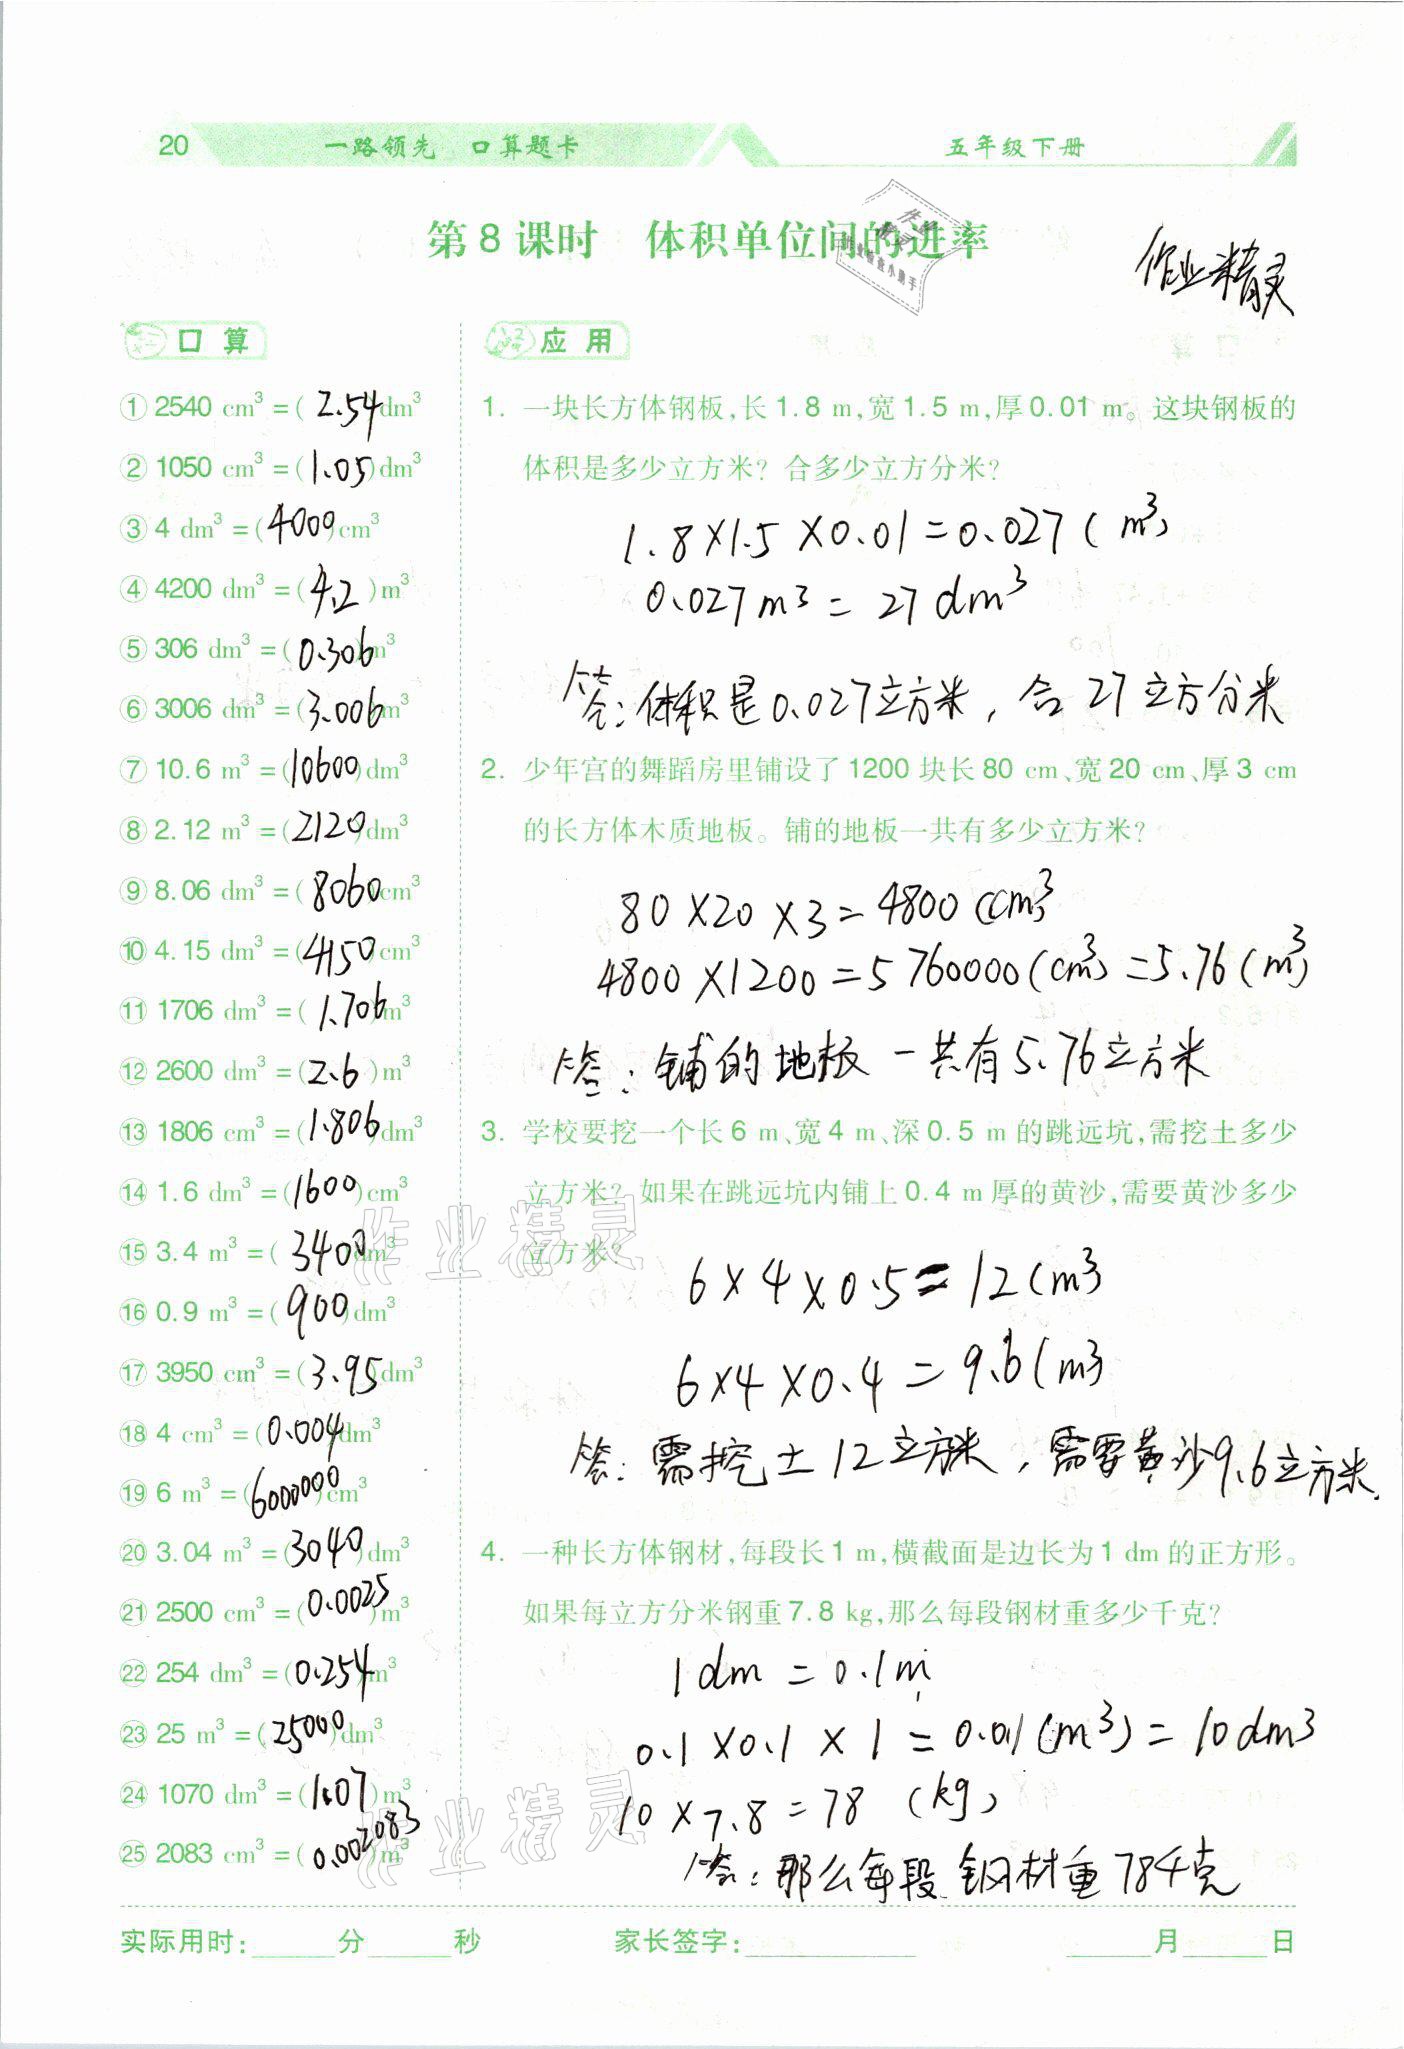 20 一路领先 口算题卡 五年级下册
第8课时 体积单位间的进率
作业精灵
口算
① 2540 cm³ = ( 2.54 dm³
② 1050 cm³ = (1.05)dm³
③ 4 dm³ = (4000)cm³
④ 4200 dm³ = (4.2)m³
⑤ 306 dm³ = (0.306)m³
⑥ 3006 dm³ = (3.006 m³
⑦ 10.6 m³ = (10600)dm³
⑧ 2.12 m³ = (2120)dm³
⑨ 8.06 dm³ = (8060)cm³
⑩ 4.15 dm³ = (4150)cm³
⑪ 1706 dm³ = (1.706 m³
⑫ 2600 dm³ = (2.6)m³
⑬ 1806 cm³ = (1.806)dm³
⑭ 1.6 dm³ = (1600)cm³
⑮ 3.4 m³ = ( 3400 dm³
⑯ 0.9 m³ = (900)dm³
⑰ 3950 cm³ = (3.95)dm³
⑱ 4 cm³ = (0.004)dm³
⑲ 6 m³ = (6000000)cm³
⑳ 3.04 m³ = (3040)dm³
㉑ 2500 cm³ = (0.0025)m³
㉒ 254 dm³ = (0.254)m³
㉓ 25 m³ = (25000)dm³
㉔ 1070 dm³ = (1.07)m³
㉕ 2083 cm³ = (0.002083)m³
应用
1. 一块长方体钢板,长1.8 m,宽1.5 m,厚0.01 m。这块钢板的
体积是多少立方米?合多少立方分米?
1.8×1.5×0.01=0.027(m³)
0.027m³=27dm³
答:体积是0.027立方米,合27立方分米
2. 少年宫的舞蹈房里铺设了1200块长80 cm、宽20 cm、厚3 cm
的长方体木质地板。铺的地板一共有多少立方米?
80×20×3=4800(cm³)
4800×1200=5760000(cm³)=5.76(m³)
答:铺的地板一共有5.76立方米
3. 学校要挖一个长6 m、宽4 m、深0.5 m的跳远坑,需挖土多少
立方米?如果在跳远坑内铺上0.4 m厚的黄沙,需要黄沙多少
立方米?
6×4×0.5=12(m³)
6×4×0.4=9.6(m³)
答:需挖土12立方米,需要黄沙9.6立方米.
4. 一种长方体钢材,每段长1 m,横截面是边长为1 dm的正方形。
如果每立方分米钢重7.8 kg,那么每段钢材重多少千克?
1dm=0.1m
0.1×0.1×1=0.01(m³)=10dm³
10×7.8=78(kg)
答:那么每段钢材重78千克
实际用时:____分____秒 家长签字:________ ____月____日
作业精灵
作业精灵